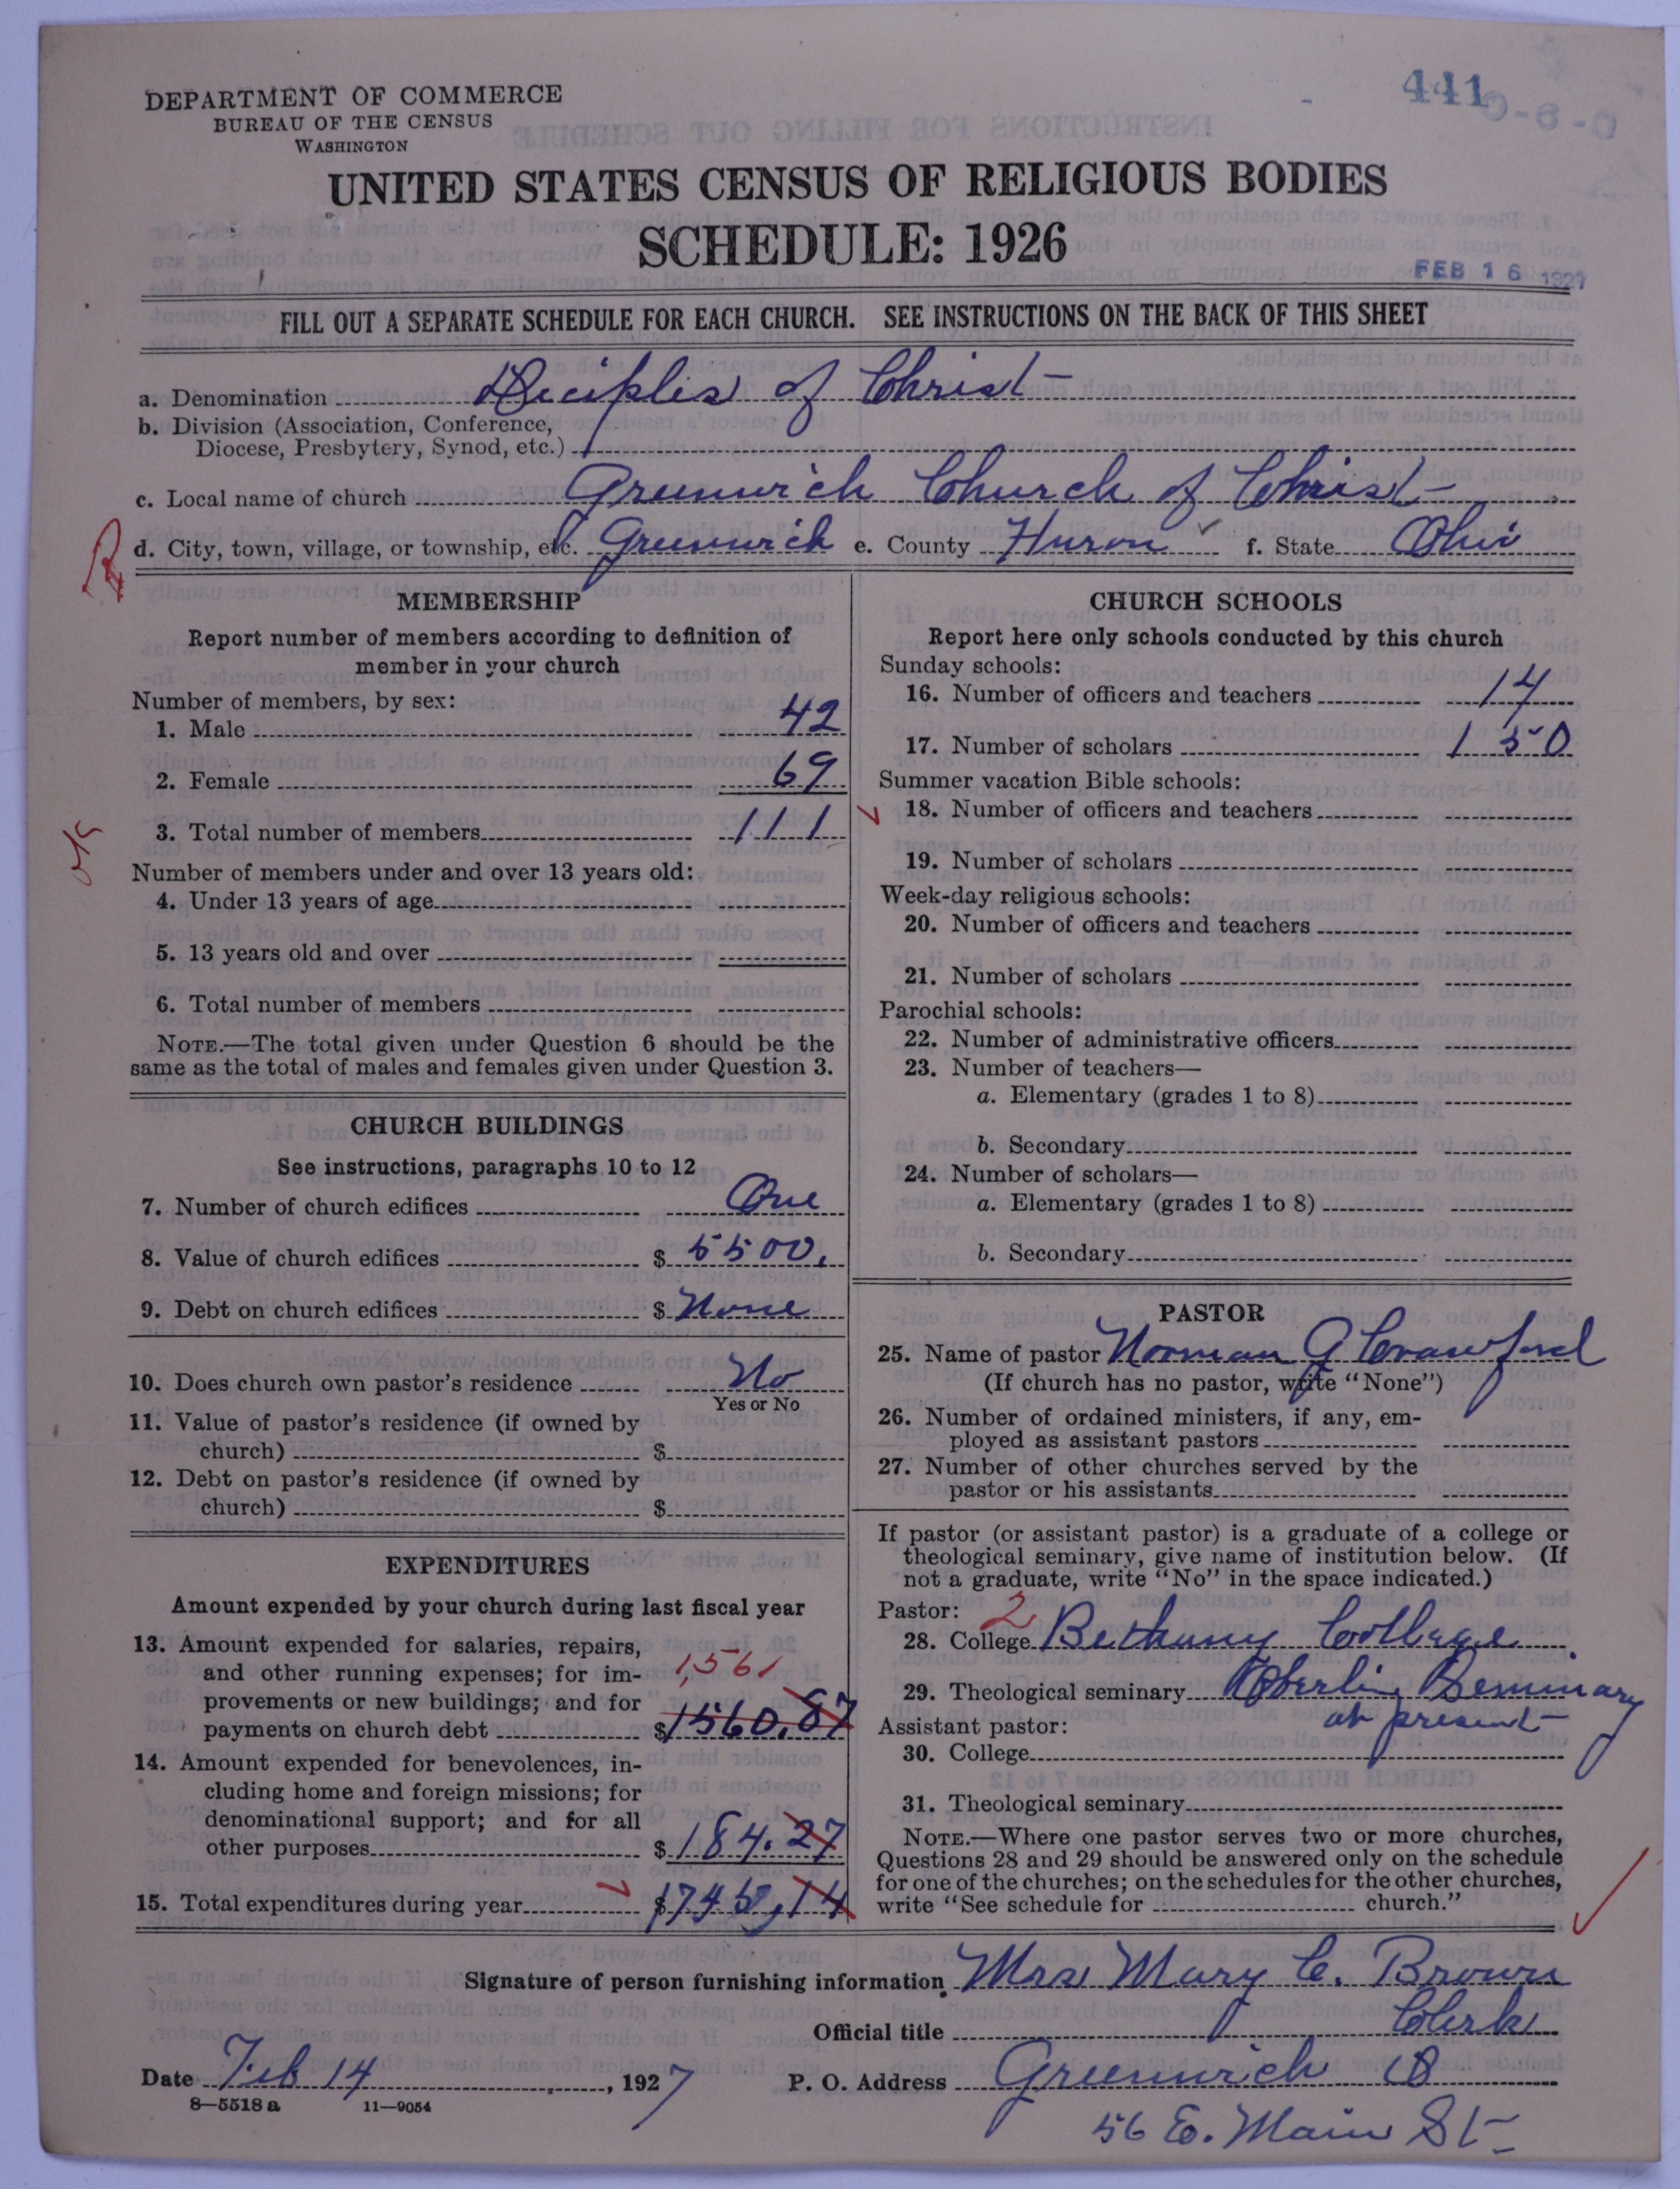 441
0-6-0
DEPARTMENT OF COMMERCE
BUREAU OF THE CENSUS
WASHINGTON
UNITED STATES CENSUS OF RELIGIOUS BODIES
SCHEDULE: 1926
FEB 16 1927
FILL OUT A SEPARATE SCHEDULE FOR EACH CHURCH. SEE INSTRUCTIONS ON THE BACK OF THIS SHEET
a. Denomination Deciples of Christ
b. Division (Association, Conference,
Diocese, Presbytery, Synod, etc.)
c. Local name of church Greenwich Church of Christ
R d. City, town, village, or township, etc. Greenwich e. County Huron f. State Ohio
MEMBERSHIP
Report number of members according to definition of
member in your church
Number of members, by sex:
1. Male 42
2. Female 69
3. Total number of members 111
ok
Number of members under and over 13 years old:
4. Under 13 years of age
5. 13 years old and over
6. Total number of members
NOTE.—The total given under Question 6 should be the
same as the total of males and females given under Question 3.
CHURCH BUILDINGS
See instructions, paragraphs 10 to 12
7. Number of church edifices One
8. Value of church edifices $ 5500.
9. Debt on church edifices $ None
10. Does church own pastor's residence No
Yes or No
11. Value of pastor's residence (if owned by
church) $
12. Debt on pastor's residence (if owned by
church) $
EXPENDITURES
Amount expended by your church during last fiscal year
13. Amount expended for salaries, repairs,
and other running expenses; for im- 1,561
provements or new buildings; and for
payments on church debt $1560.87
14. Amount expended for benevolences, in-
cluding home and foreign missions; for
denominational support; and for all
other purposes $ 184.27
15. Total expenditures during year $1745,14
CHURCH SCHOOLS
Report here only schools conducted by this church
Sunday schools:
16. Number of officers and teachers 14
17. Number of scholars 150
Summer vacation Bible schools:
18. Number of officers and teachers
19. Number of scholars
Week-day religious schools:
20. Number of officers and teachers
21. Number of scholars
Parochial schools:
22. Number of administrative officers
23. Number of teachers—
a. Elementary (grades 1 to 8)
b. Secondary
24. Number of scholars—
a. Elementary (grades 1 to 8)
b. Secondary
PASTOR
25. Name of pastor Norman G Crawford
(If church has no pastor, write "None")
26. Number of ordained ministers, if any, em-
ployed as assistant pastors
27. Number of other churches served by the
pastor or his assistants
If pastor (or assistant pastor) is a graduate of a college or
theological seminary, give name of institution below. (If
not a graduate, write "No" in the space indicated.)
Pastor: 2
28. College Bethany College
29. Theological seminary Oberlin Seminary
at present
Assistant pastor:
30. College
31. Theological seminary
NOTE.—Where one pastor serves two or more churches,
Questions 28 and 29 should be answered only on the schedule
for one of the churches; on the schedules for the other churches,
write "See schedule for church."
Signature of person furnishing information Mrs Mary C. Brown
Official title Clerk
Date Feb 14, 1927 P. O. Address Greenwich O
8—5518 a 11—9054
56 E. Main St